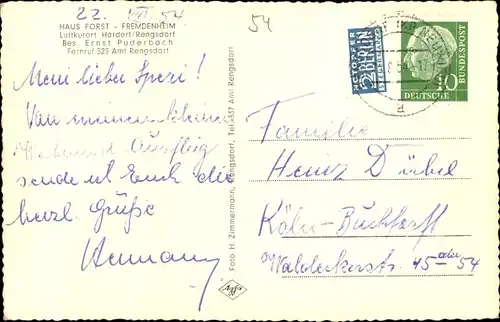 22. VII. 54
54
HAUS FORST - FREMDENHEIM
Luftkurort Hardert/Rengsdorf
Bes. Ernst Puderbach
Fernruf 323 Amt Rengsdorf
Mein lieber Spezi!
Von meinem schönen
Ausflug
sende ich Euch die
herzl. Grüße
Hermann
Foto H. Zimmermann, Rengsdorf, Tel. 357 Amt Rengsdorf
Agfa
NOTOPFER
2 BERLIN
STEUERMARKE
DEUTSCHE
BUNDESPOST
10
Familie
Heinz Dübel
Köln-Buchforst
Waldeckerstr. 45 oder 54